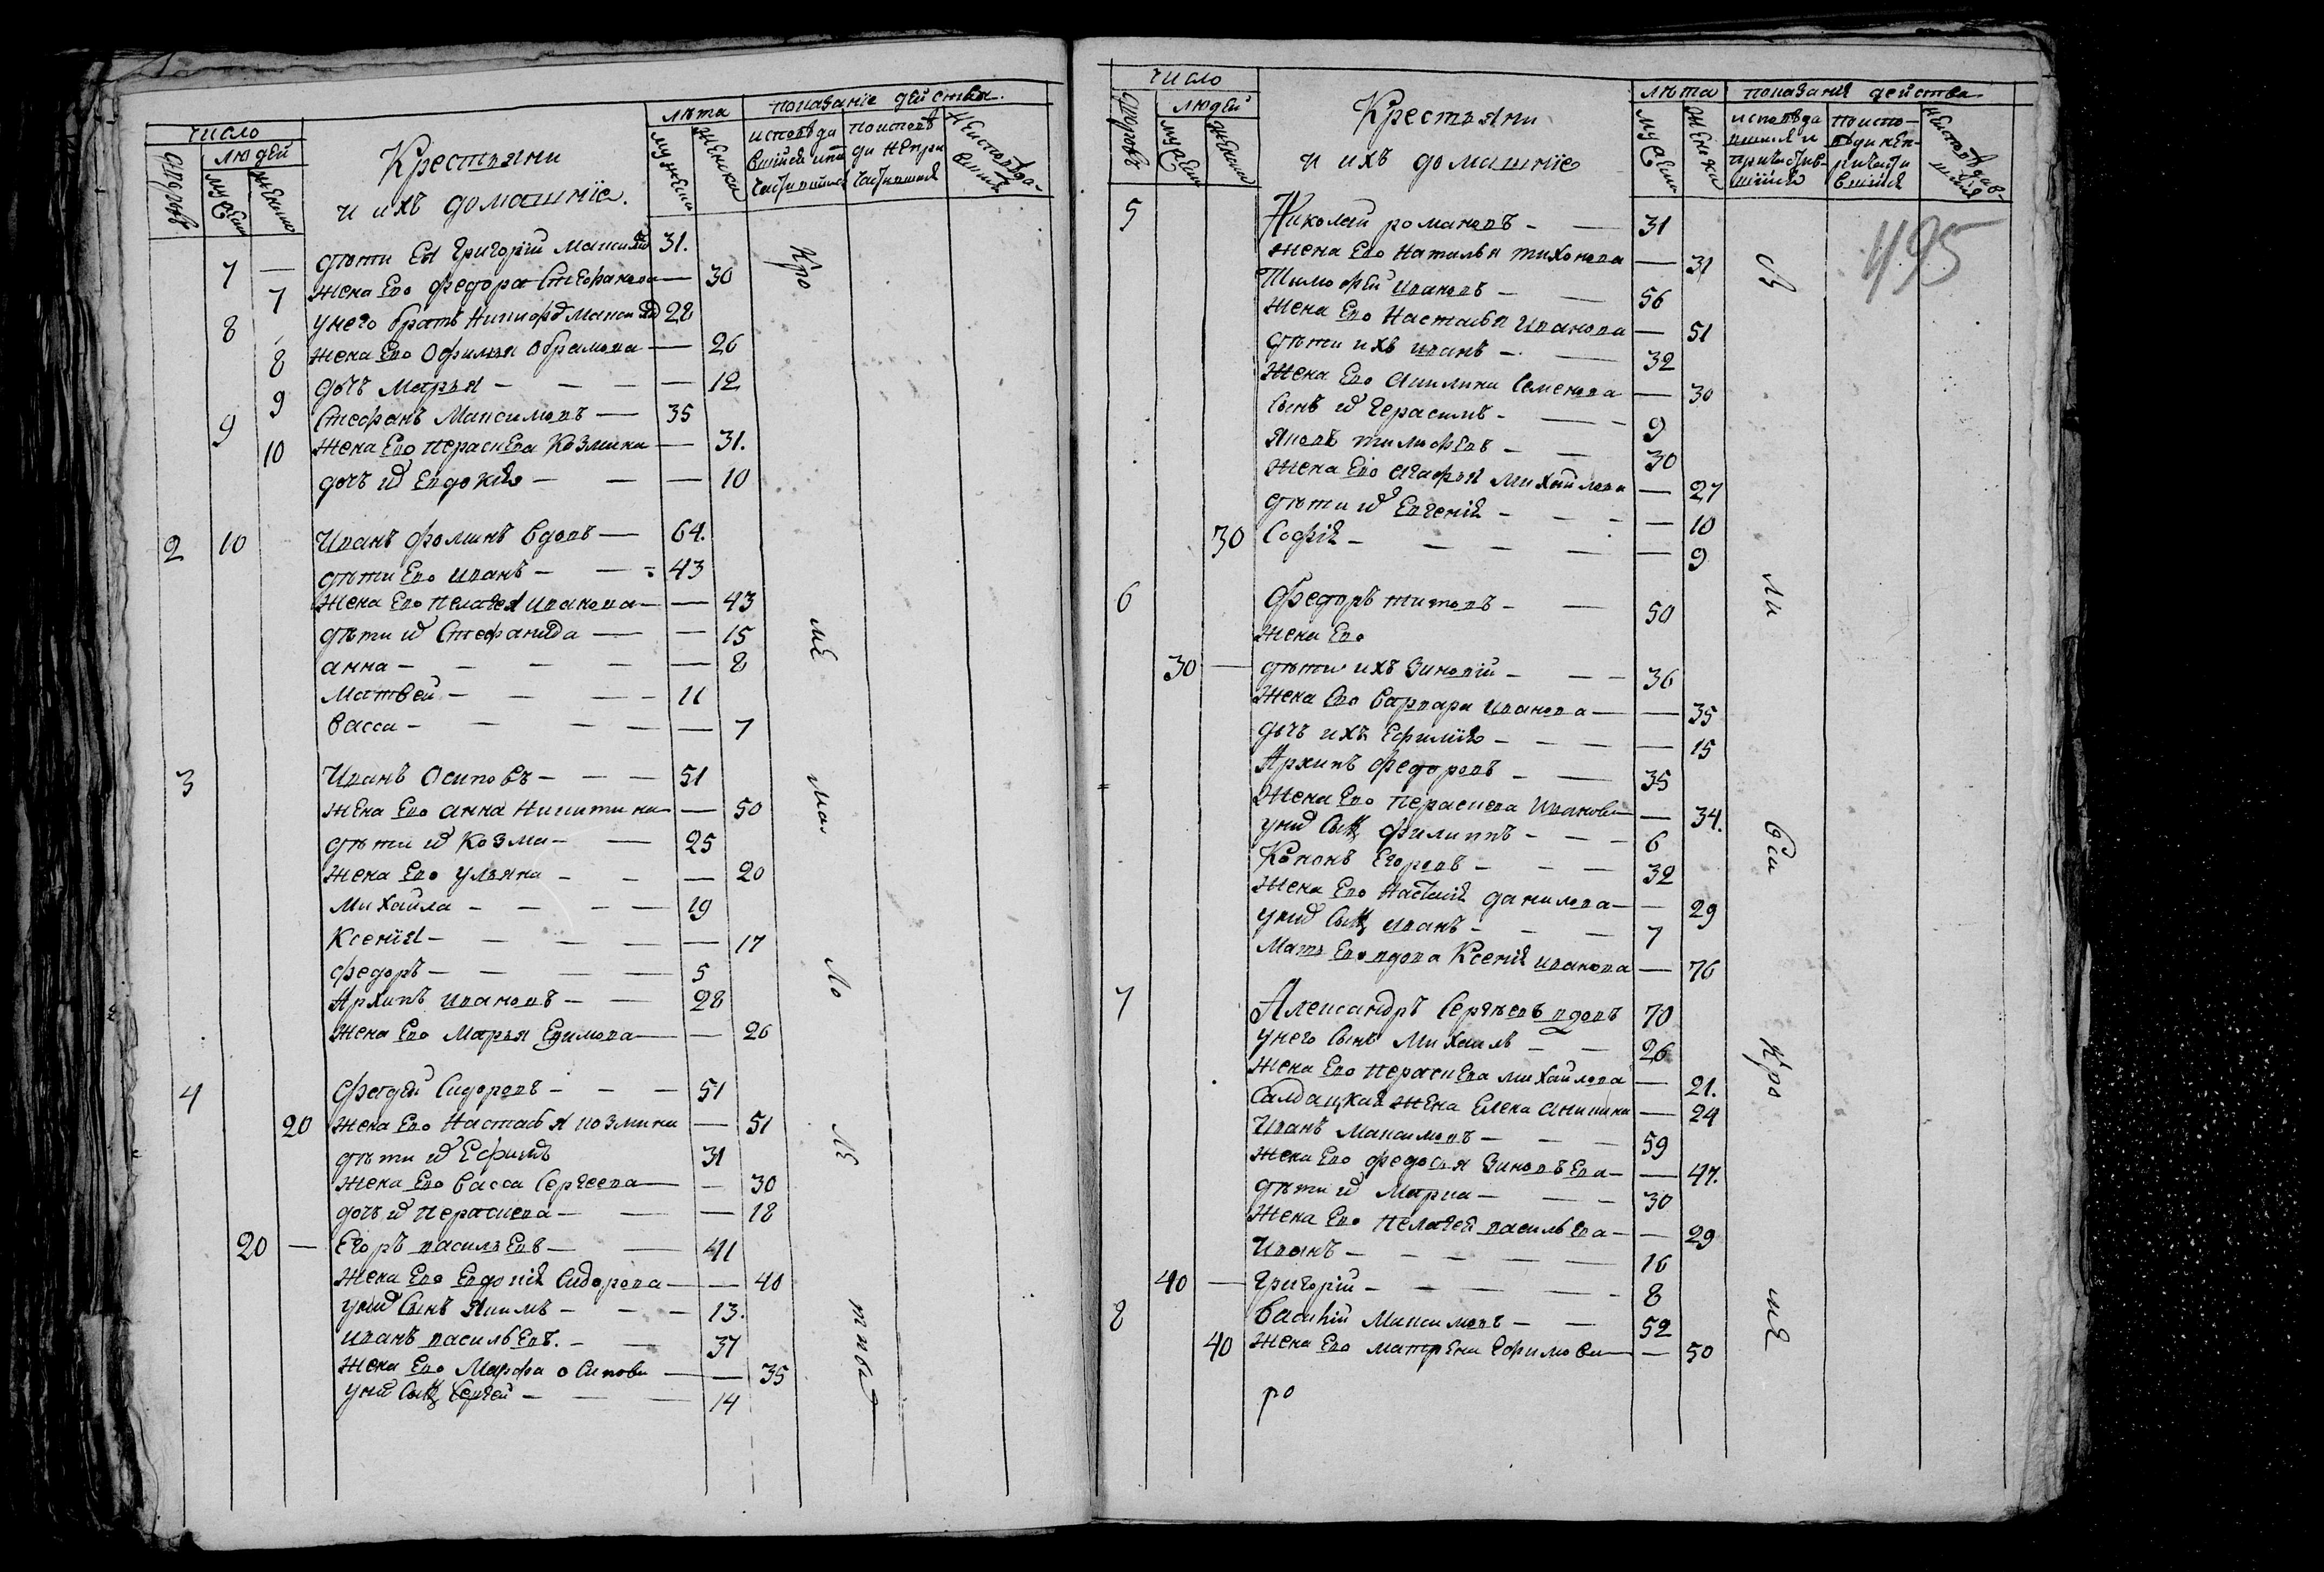 число
людей
дворовъ
мужеска
женска
Крестьяни
и ихъ домашнїе.
лѣта
мужеска
женска
показанїе действа.
исповѣда
вшїися ипри
частившїися
поисповѣ
ди непри
частившїися
Неисповѣда-
вшїися
7 — дѣти Ея Григорїй Максимовъ 31.
7 жена Его Федора Стефанова — 30
8 унего братъ Никифоръ Максимовъ 28
8 жена Его Офимья Обрамова — 26
9 дочь Марья — — — 12
9 Стефанъ Максимовъ — 35
10 жена Его Пераскева Козмина — 31.
дочь их Евдокия — — — 10
2 10 Иванъ Фоминъ вдовъ — 64.
дѣти Его Иванъ — — 43
жена Его Пелагея Иванова — — 43
дѣти их Стефанида — — 15
анна — — — — 8
Матвей — — — — 11
васса — — — — 7
3 Иванъ Осиповъ — — — 51
жена Его анна Никитина — 50
дѣти их Козма — — 25
жена Его Ульяна — — — 20
Михайла — — — — 19
Ксенїя — — — — — 17
федоръ — — — — 5
Архипъ Ивановъ — — 28
жена Его Марья Евимова — — 26
4 Фадей Сидоровъ — — — 51
20 жена Его Настасья козмина — 51
дѣти их Ефимъ 31
жена Его Васса Сергеева — — 30
дочь их Пераскева — — — 18
20 — Егоръ васильевъ — — 41
жена Его Евдокия Сидорова — — 40
у них Сынъ Якимъ — — — 13.
иванъ васильевъ. — — 37
жена Его Марфа осипова — — 35
у них Сынъ Сергей — — — 14
Кро
мѣ
мал
ло
лѣ
тныхъ
число
людей
дворовъ
мужеска
женска
Крестьяни
и ихъ домашнїе
лѣта
мужеска
женска
показанїя действа
исповѣда
вшїися и
причастив-
шїися
поиспо-
вѣди неп-
ричасти
вшїися
неисповѣдав-
шїися
495
5 Николай романовъ — — 31
жена Его Наталья тихонова — 31
Тимофей ивановъ — — 56
жена Его Настасья Иванова — 51
дѣти ихъ иванъ — — 32
жена Его Акилина Семенова — 30
Сынъ их Герасимъ — — — 9
Яковъ тимофевъ — — 30
жена Его агафья михайлова — 27
дѣти их Евгения — — — — 10
30 Софїя — — — — — 9
6 Федоръ титовъ — — 50
жена Его
30 — дѣти ихъ Зиновїй — — — 36
жена Его варвара иванова — — 35
дочь ихъ Ефимїя — — — — 15
Архипъ федоровъ — — 35
жена Его Пераскева Иванова — 34.
у них Сынъ филиппъ — — — 6
Кононъ Егоровъ — — — 32
жена Его Настасия данилова — — 29
у них Сынъ иванъ — — — 7
Мать Его вдова Ксенїя иванова — 76
7 Александръ Сергѣевъ вдовъ 70
унего Сынъ Михаилъ — — 26
жена Его пераскева михайлова — 21.
Салдацкая жена Елена аникина — 24
Иванъ Максимовъ — — — 59
жена Его федосья Зиновьева — — 47.
дѣти их Марка — — — 30
жена Его Пелагея васильева — — 29
Иванъ — — — — — 16
40 — Григорїй — — — — — 8
8 Василїй Максимовъ — — 52
40 жена Его матрена Ефимова — — 50
ро
Вси
Кро
мѣ